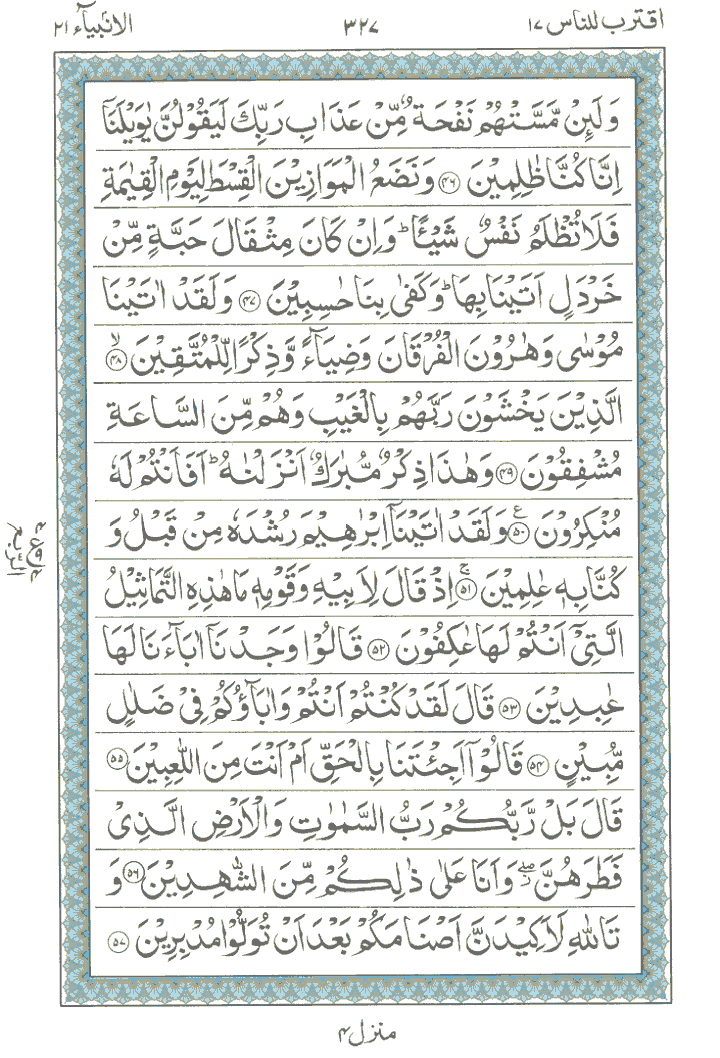 اقترب للناس ١٧ ٣٢٧ الانبیآء ٢١
وَلَئِنْ مَّسَّتْهُمْ نَفْحَةٌ مِّنْ عَذَابِ رَبِّكَ لَيَقُوْلُنَّ يٰوَيْلَنَاۤ
اِنَّا كُنَّا ظٰلِمِيْنَ ﴿۴۶﴾ وَنَضَعُ الْمَوَازِيْنَ الْقِسْطَ لِيَوْمِ الْقِيٰمَةِ
فَلَا تُظْلَمُ نَفْسٌ شَيْـًٔا ؕ وَاِنْ كَانَ مِثْقَالَ حَبَّةٍ مِّنْ
خَرْدَلٍ اَتَيْنَا بِهَا ؕ وَكَفٰى بِنَا حٰسِبِيْنَ ﴿۴۷﴾ وَلَقَدْ اٰتَيْنَا
مُوْسٰى وَهٰرُوْنَ الْفُرْقَانَ وَضِيَآءً وَّذِكْرًا لِّلْمُتَّقِيْنَ ﴿۴۸﴾ ۙ
الَّذِيْنَ يَخْشَوْنَ رَبَّهُمْ بِالْغَيْبِ وَهُمْ مِّنَ السَّاعَةِ
مُشْفِقُوْنَ ﴿۴۹﴾ وَهٰذَا ذِكْرٌ مُّبٰرَكٌ اَنْزَلْنٰهُ ؕ اَفَاَنْتُمْ لَهٗ
مُنْكِرُوْنَ ﴿۵۰﴾ ع وَلَقَدْ اٰتَيْنَاۤ اِبْرٰهِيْمَ رُشْدَهٗ مِنْ قَبْلُ وَ
كُنَّا بِهٖ عٰلِمِيْنَ ﴿۵۱﴾ ۚ اِذْ قَالَ لِاَبِيْهِ وَقَوْمِهٖ مَا هٰذِهِ التَّمَاثِيْلُ
الَّتِيْۤ اَنْتُمْ لَهَا عٰكِفُوْنَ ﴿۵۲﴾ قَالُوْا وَجَدْنَاۤ اٰبَآءَنَا لَهَا
عٰبِدِيْنَ ﴿۵۳﴾ قَالَ لَقَدْ كُنْتُمْ اَنْتُمْ وَاٰبَآؤُكُمْ فِيْ ضَلٰلٍ
مُّبِيْنٍ ﴿۵۴﴾ قَالُوْۤا اَجِئْتَنَا بِالْحَقِّ اَمْ اَنْتَ مِنَ اللّٰعِبِيْنَ ﴿۵۵﴾
قَالَ بَلْ رَّبُّكُمْ رَبُّ السَّمٰوٰتِ وَالْاَرْضِ الَّذِيْ
فَطَرَهُنَّ ۖ وَاَنَا عَلٰى ذٰلِكُمْ مِّنَ الشّٰهِدِيْنَ ﴿۵۶﴾ وَ
تَاللّٰهِ لَاَكِيْدَنَّ اَصْنَامَكُمْ بَعْدَ اَنْ تُوَلُّوْا مُدْبِرِيْنَ ﴿۵۷﴾
الربع
منزل ۴